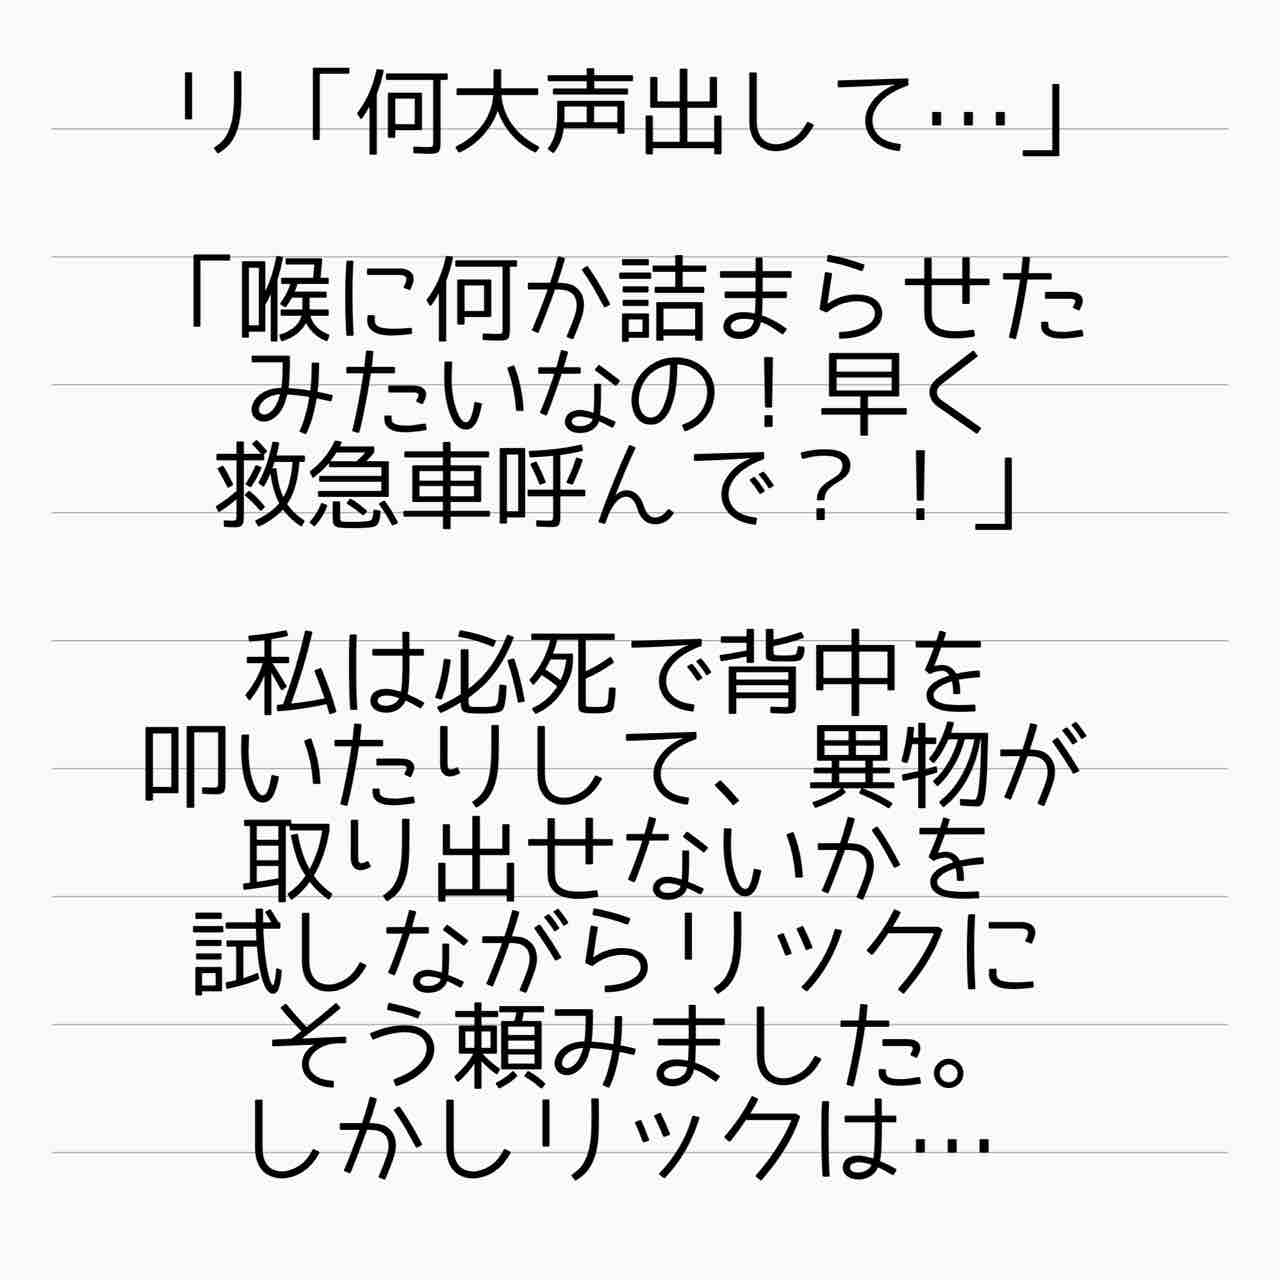 リ「何大声出して…」
「喉に何か詰まらせた
みたいなの！早く
救急車呼んで？！」
私は必死で背中を
叩いたりして、異物が
取り出せないかを
試しながらリックに
そう頼みました。
しかしリックは…